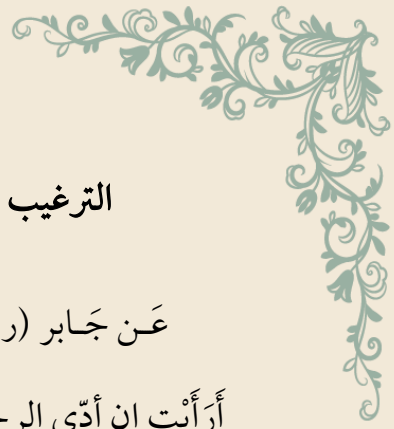 الترغيب
عَـن جَـابر (ر
أَرَأَيْت إن أدّى الرج